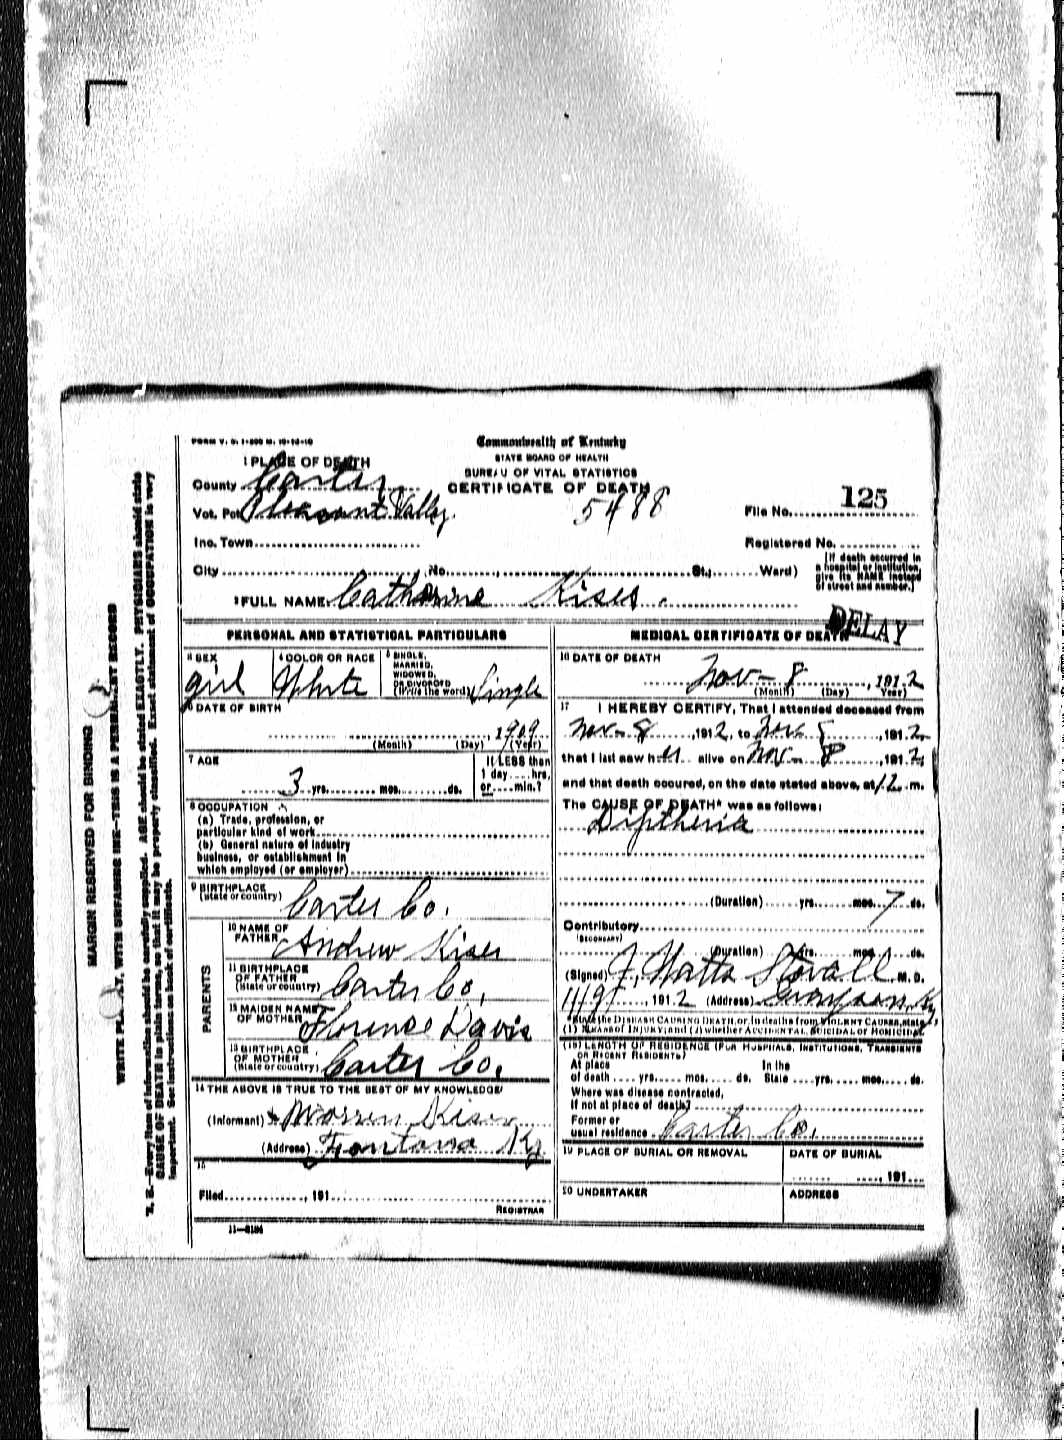 FORM V. S. 1-200 M. 10-12-10
Commonwealth of Kentucky
STATE BOARD OF HEALTH
BUREAU OF VITAL STATISTICS
CERTIFICATE OF DEATH
1 PLACE OF DEATH
County Carter
Vot. Pct. Pleasant Valley.
5488
File No. 125
Inc. Town
Registered No.
City No. St.; Ward)
[If death occurred in
a hospital or institution,
give its NAME instead
of street and number.]
2 FULL NAME Catherine Kiser.
DELAY
PERSONAL AND STATISTICAL PARTICULARS
3 SEX
girl
4 COLOR OR RACE
White
5 SINGLE,
MARRIED,
WIDOWED,
OR DIVORCED
(Write the word) Single
6 DATE OF BIRTH
, 1909
(Month) (Day) (Year)
7 AGE
3 yrs. mos. ds.
If LESS than
1 day hrs.
or min.?
8 OCCUPATION
(a) Trade, profession, or
particular kind of work
(b) General nature of industry
business, or establishment in
which employed (or employer)
9 BIRTHPLACE
(State or country) Carter Co.
PARENTS
10 NAME OF
FATHER Andrew Kiser
11 BIRTHPLACE
OF FATHER
(State or country) Carter Co.
12 MAIDEN NAME
OF MOTHER Florence Davis
13 BIRTHPLACE
OF MOTHER
(State or country) Carter Co.
14 THE ABOVE IS TRUE TO THE BEST OF MY KNOWLEDGE
(Informant) Warren Kiser
(Address) Fontana Ky
15
Filed , 191
REGISTRAR
11-3184
MEDICAL CERTIFICATE OF DEATH
16 DATE OF DEATH
Nov - 8 , 1912
(Month) (Day) (Year)
17 I HEREBY CERTIFY, That I attended deceased from
Nov - 8 , 1912, to Nov 8 , 1912
that I last saw her alive on Nov - 8 , 1912,
and that death occured, on the date stated above, at 12 m.
The CAUSE OF DEATH* was as follows:
Diptheria
(Duration) yrs. mos. 7 ds.
Contributory
(SECONDARY)
(Duration) yrs. mos. ds.
(Signed) J. Watts Stovall M. D.
11/9 , 1912 (Address) Grayson, Ky
*State the DISEASE CAUSING DEATH, or, in deaths from VIOLENT CAUSES, state
(1) MEANS OF INJURY; and (2) whether ACCIDENTAL, SUICIDAL or HOMICIDAL.
(18) LENGTH OF RESIDENCE (FOR HOSPITALS, INSTITUTIONS, TRANSIENTS
OR RECENT RESIDENTS)
At place In the
of death yrs. mos. ds. State yrs. mos. ds.
Where was disease contracted,
If not at place of death?
Former or
usual residence Carter Co.
19 PLACE OF BURIAL OR REMOVAL
DATE OF BURIAL
, 191
20 UNDERTAKER
ADDRESS
MARGIN RESERVED FOR BINDING
WRITE PLAINLY, WITH UNFADING INK—THIS IS A PERMANENT RECORD
N. B.—Every item of information should be carefully supplied. AGE should be stated EXACTLY. PHYSICIANS should state
CAUSE OF DEATH in plain terms, so that it may be properly classified. Exact statement of OCCUPATION is very
important. See instructions on back of certificate.